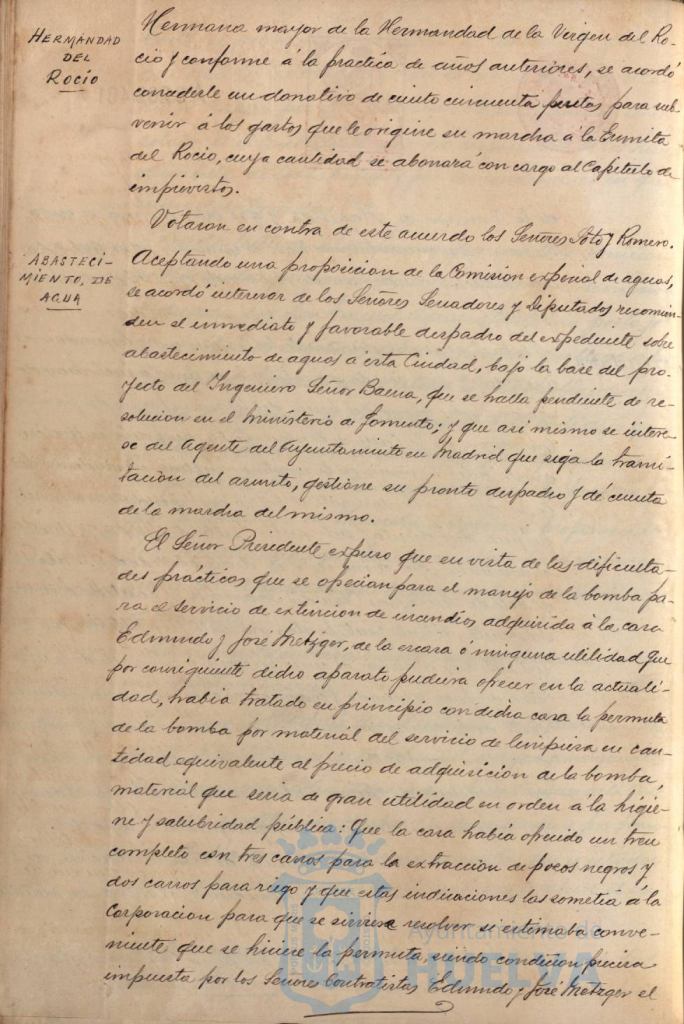 HERMANDAD
DEL
ROCÍO
Hermana mayor de la Hermandad de la Virgen del Ro-
cio y conforme á la practica de años anteriores, se acordó
concederle un donativo de ciento cincuenta pesetas para sub-
venir á los gastos que le origine su marcha á la Ermita
del Rocio, cuya cantidad se abonará con cargo al Capitulo de
imprevistos.
Votaron en contra de este acuerdo los Señores Soto y Romero.
ABASTECI-
MIENTO, DE
AGUA
Aceptando una proposicion de la Comision especial de aguas,
se acordó interesar de los Señores Senadores y Diputados recomien-
den el inmediato y favorable despacho del expediente sobre
abastecimiento de aguas á esta Ciudad, bajo la base del pro-
yecto del Ingeniero Señor Baena, que se halla pendiente de re-
solucion en el Ministerio de Fomento; y que asi mismo se intere-
se del Agente del Ayuntamiento en Madrid que siga la trami-
tacion del asunto, gestione su pronto despacho y dé cuenta
de la marcha del mismo.
El Señor Presidente expuso que en vista de las dificulta-
des prácticas que se ofrecian para el manejo de la bomba pa-
ra el servicio de extincion de incendios adquirida á la casa
Edmundo y José Metzger, de la escasa ó ninguna utilidad que
por consiguiente dicho aparato pudiera ofrecer en la actuali-
dad, habia tratado en principio con dicha casa la permuta
de la bomba por material del servicio de limpieza en can-
tidad equivalente al precio de adquisicion de la bomba,
material que seria de gran utilidad en orden á la higie-
ne y salubridad pública: Que la casa habia ofrecido un tren
completo con tres carros para la extraccion de pozos negros y
dos carros para riego y que estas indicaciones las sometia á la
Corporacion para que se sirviese resolver si estimaba conve-
niente que se hiciese la permuta, siendo condicion precisa
impuesta por los Señores Contratistas Edmundo y José Metzger el
Ayuntamiento de
HUELVA